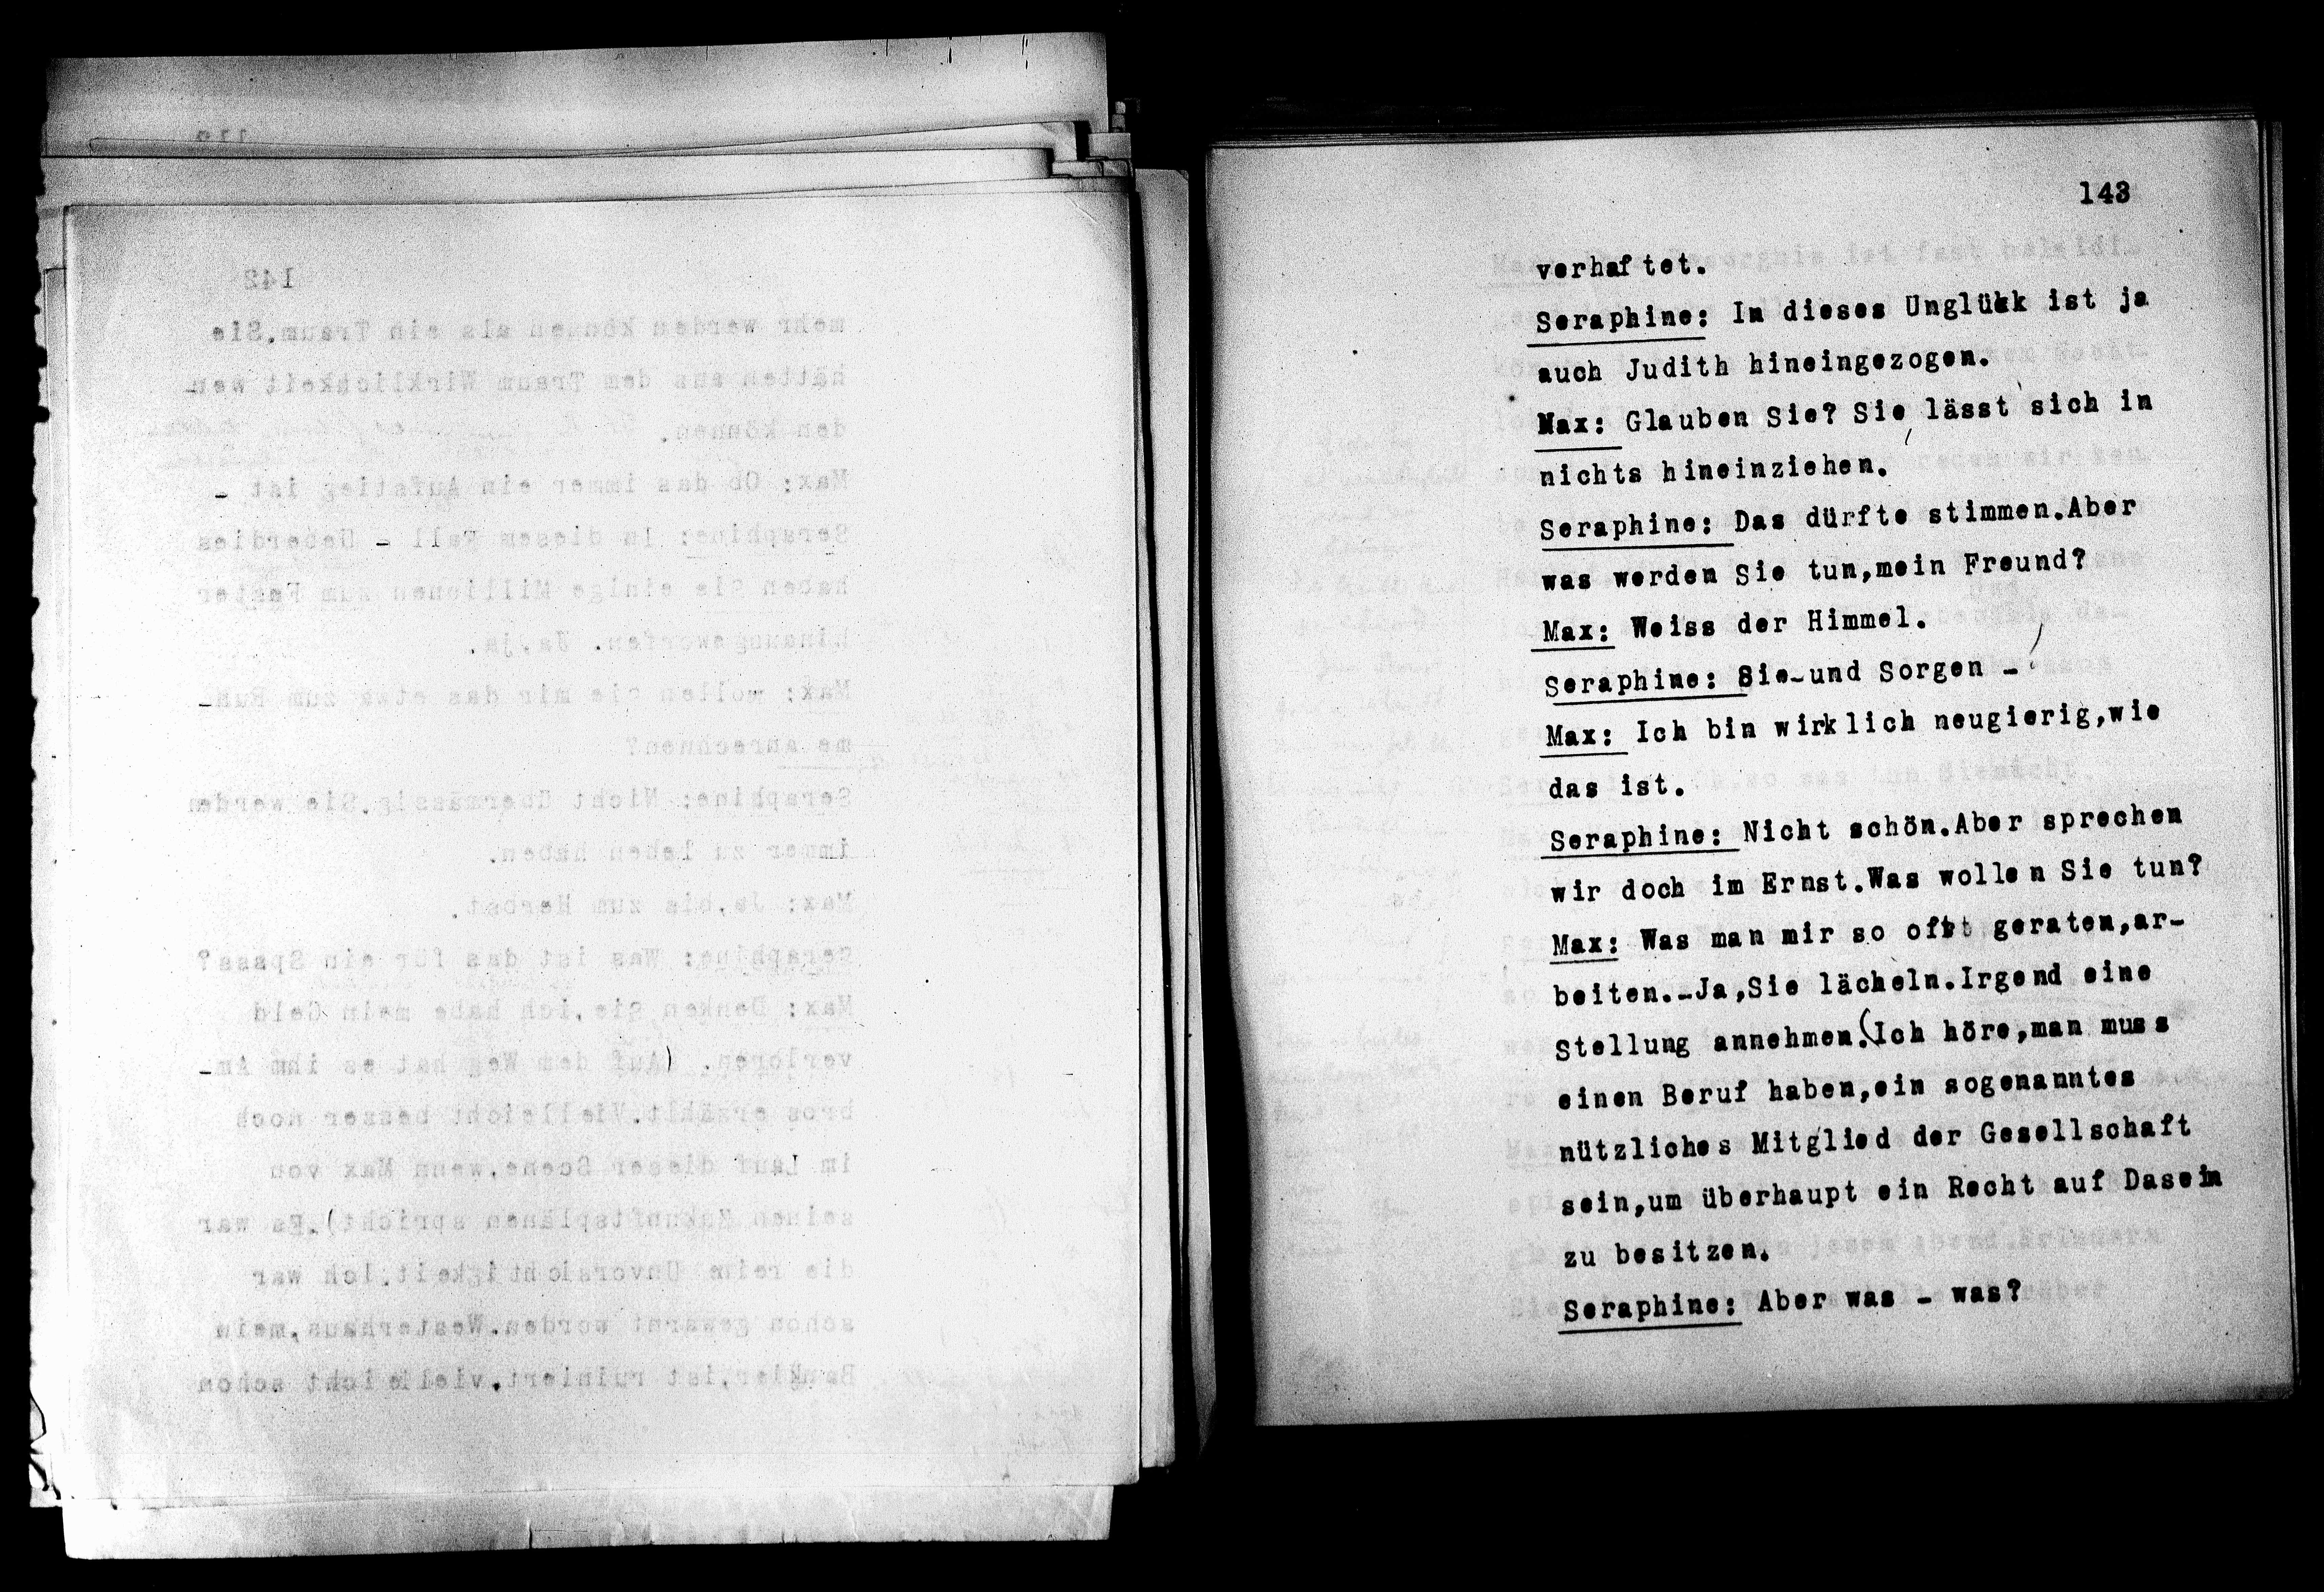 142
mehr werden können als ein Traum.Sie
hätten aus dem Traum Wirklichkeit wer-
den können.
Max: Ob das immer ein Aufstieg ist -
Seraphine: In diesem Fall - Ueberdies
haben Sie einige Millionen zum Fenster
hinausgeworfen. Ja,ja.
Max: Wollen Sie mir das etwa zum Ruh-
me anrechnen?
Seraphine: Nicht übermässig.Sie werden
immer zu leben haben.
Max: Ja,bis zum Herbst.
Seraphine: Was ist das für ein Spass?
Max: Denken Sie,ich habe mein Geld
verloren. (Auf dem Weg hat es ihm Am-
bros erzählt.Vielleicht besser noch
im Lauf dieser Scene,wenn Max von
seinen Zukunftsplänen spricht).Es war
die reine Unvorsichtigkeit.Ich war
schon gewarnt worden.Westerhaus,mein
Bankier,ist ruiniert,vielleicht schon
143
verhaftet.
Seraphine: In dieses Unglükk ist ja
auch Judith hineingezogen.
Max: Glauben Sie? Sie lässt sich in
nichts hineinziehen.
Seraphine: Das dürfte stimmen.Aber
was werden Sie tun,mein Freund?
Max: Weiss der Himmel.
Seraphine: Sie-und Sorgen -
Max: Ich bin wirklich neugierig,wie
das ist.
Seraphine: Nicht schön.Aber sprechen
wir doch im Ernst.Was wollen Sie tun?
Max: Was man mir so oft geraten,ar-
beiten.-Ja,Sie lächeln.Irgend eine
Stellung annehmen.(Ich höre,man muss
einen Beruf haben,ein sogenanntes
nützliches Mitglied der Gesellschaft
sein,um überhaupt ein Recht auf Dasein
zu besitzen.
Seraphine: Aber was - was?